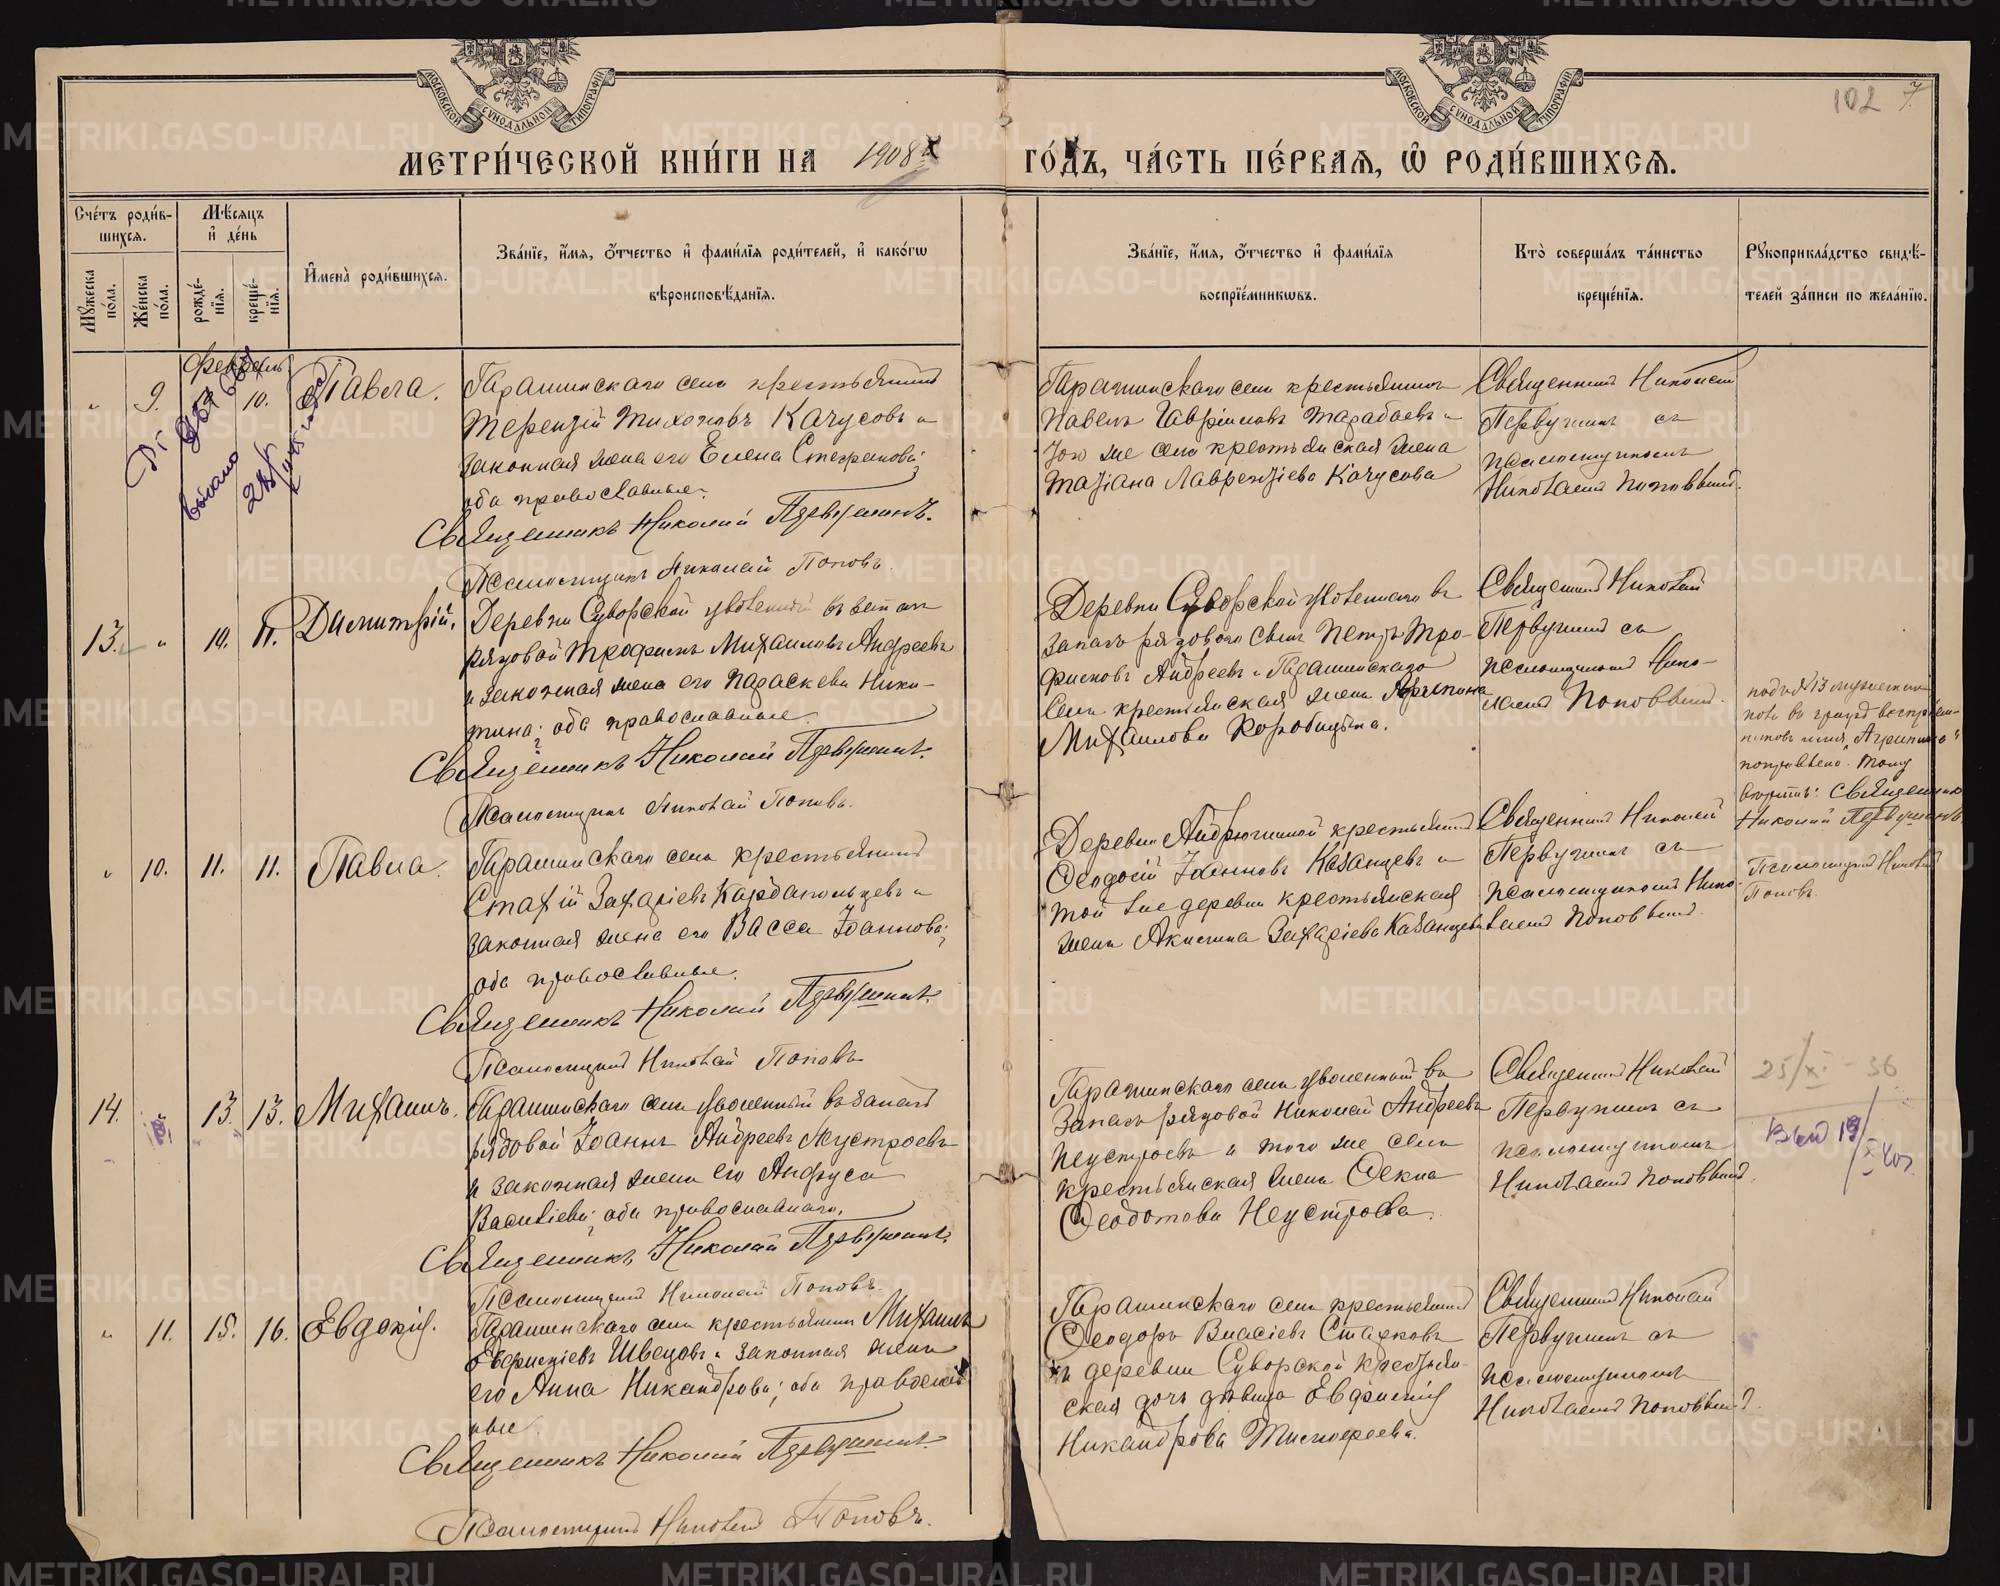 102 7.
МОСКОВСКОЙ СУНОДАЛЬНОЙ ТИПОГРАФІИ
МОСКОВСКОЙ СУНОДАЛЬНОЙ ТИПОГРАФІИ
МЕТРИ́ЧЕСКОЙ КНИ́ГИ НА 1908 ГО́ДЪ, ЧА́СТЬ ПЕ́РВАЯ, Ѽ РОДИ́ВШИХСЯ.
Сче́тъ роди́в-
шихся.
Мѣ́сяцъ
и҆ де́нь
Му́жеска по́ла.
Же́нска по́ла.
рожде́-
нїя.
креще́-
нїя.
И҆мена̀ роди́вшихся.
Зва́нїе, и҆́мя, ѻ҆́тчество и҆ фами́лїя роди́телей, и҆ како́гѡ
вѣроисповѣ́данїя.
Зва́нїе, и҆́мя, ѻ҆́тчество и҆ фами́лїя
воспрїе́мникѡвъ.
Кто̀ соверша́лъ та́инство
креще́нїя.
Рукоприкла́дство свидѣ́-
телей за́писи по жела́нїю.
Февраль
" 9. 10. Павла.
Гарашинскаго села крестьянинъ
Терентій Тихоновъ Качусовъ и
законная жена его Елена Стефанова;
оба православные.
Священникъ Николай Первушинъ.
Псаломщикъ Николай Поповъ.
Гарашинскаго села крестьянинъ
Павелъ Гавріиловъ Тарабаевъ и
того же села крестьянская жена
Татіана Лаврентіева Качусова
Священникъ Николай
Первушинъ съ
псаломщикомъ
Николаемъ Поповымъ.
выдано
13. " 10. 11. Димитрій.
Деревни Суворской уволенный въ запасъ
рядовой Трофимъ Михаиловъ Андреевъ
и законная жена его Параскева Ники-
тина; оба православные.
Священникъ Николай Первушинъ.
Псаломщикъ Николай Поповъ.
Деревни Суворской уволеннаго въ
запасъ рядового сынъ Петръ Тро-
фимовъ Андреевъ и Гарашинскаго
села крестьянская жена Агрипина
Михаилова Коровицына.
Священникъ Николай
Первушинъ съ
псаломщикомъ Нико-
лаемъ Поповымъ.
подъ № 13 мужеска
пола въ графѣ воспріем-
никовъ имя "Агрипина"
поправлено. Тому
вѣрить: Священникъ
Николай Первушинъ.
Псаломщикъ Николай
Поповъ.
" 10. 11. 11. Павла.
Гарашинскаго села крестьянинъ
Стахій Захаріевъ Кардапольцевъ и
законная жена его Васса Іоаннова;
оба православные.
Священникъ Николай Первушинъ.
Псаломщикъ Николай Поповъ
Деревни Андрюшиной крестьянинъ
Ѳеодосій Іоанновъ Казанцевъ и
той же деревни крестьянская
жена Акилина Захаріева Казанцева
Священникъ Николай
Первушинъ съ
псаломщикомъ Нико-
лаемъ Поповымъ.
14. 13. 13. Михаилъ.
Гарашинскаго села уволенный въ запасъ
рядовой Іоаннъ Андреевъ Неустроевъ
и законная жена его Анфуса
Василіева; оба православнаго.
Священникъ Николай Первушинъ.
Псаломщикъ Николай Поповъ.
Гарашинскаго села уволенный въ
запасъ рядовой Николай Андреевъ
Неустроевъ и того же села
крестьянская жена Ѳекла
Ѳеодотова Неустроева.
Священникъ Николай
Первушинъ съ
псаломщикомъ
Николаемъ Поповымъ.
25/XI - 36
" 11. 15. 16. Евдокія.
Гарашинскаго села крестьянинъ Михаилъ
Евфиміевъ Швецовъ и законная жена
его Анна Никандрова; оба православ-
ные.
Священникъ Николай Первушинъ.
Псаломщикъ Николай Поповъ.
Гарашинскаго села крестьянинъ
Ѳеодоръ Власіевъ Стахровъ
и деревни Суворской крестьян-
ская дочь дѣвица Евфимія
Никандрова Тимофеева.
Священникъ Николай
Первушинъ съ
псаломщикомъ
Николаемъ Поповымъ.
METRIKI.GASO-URAL.RU